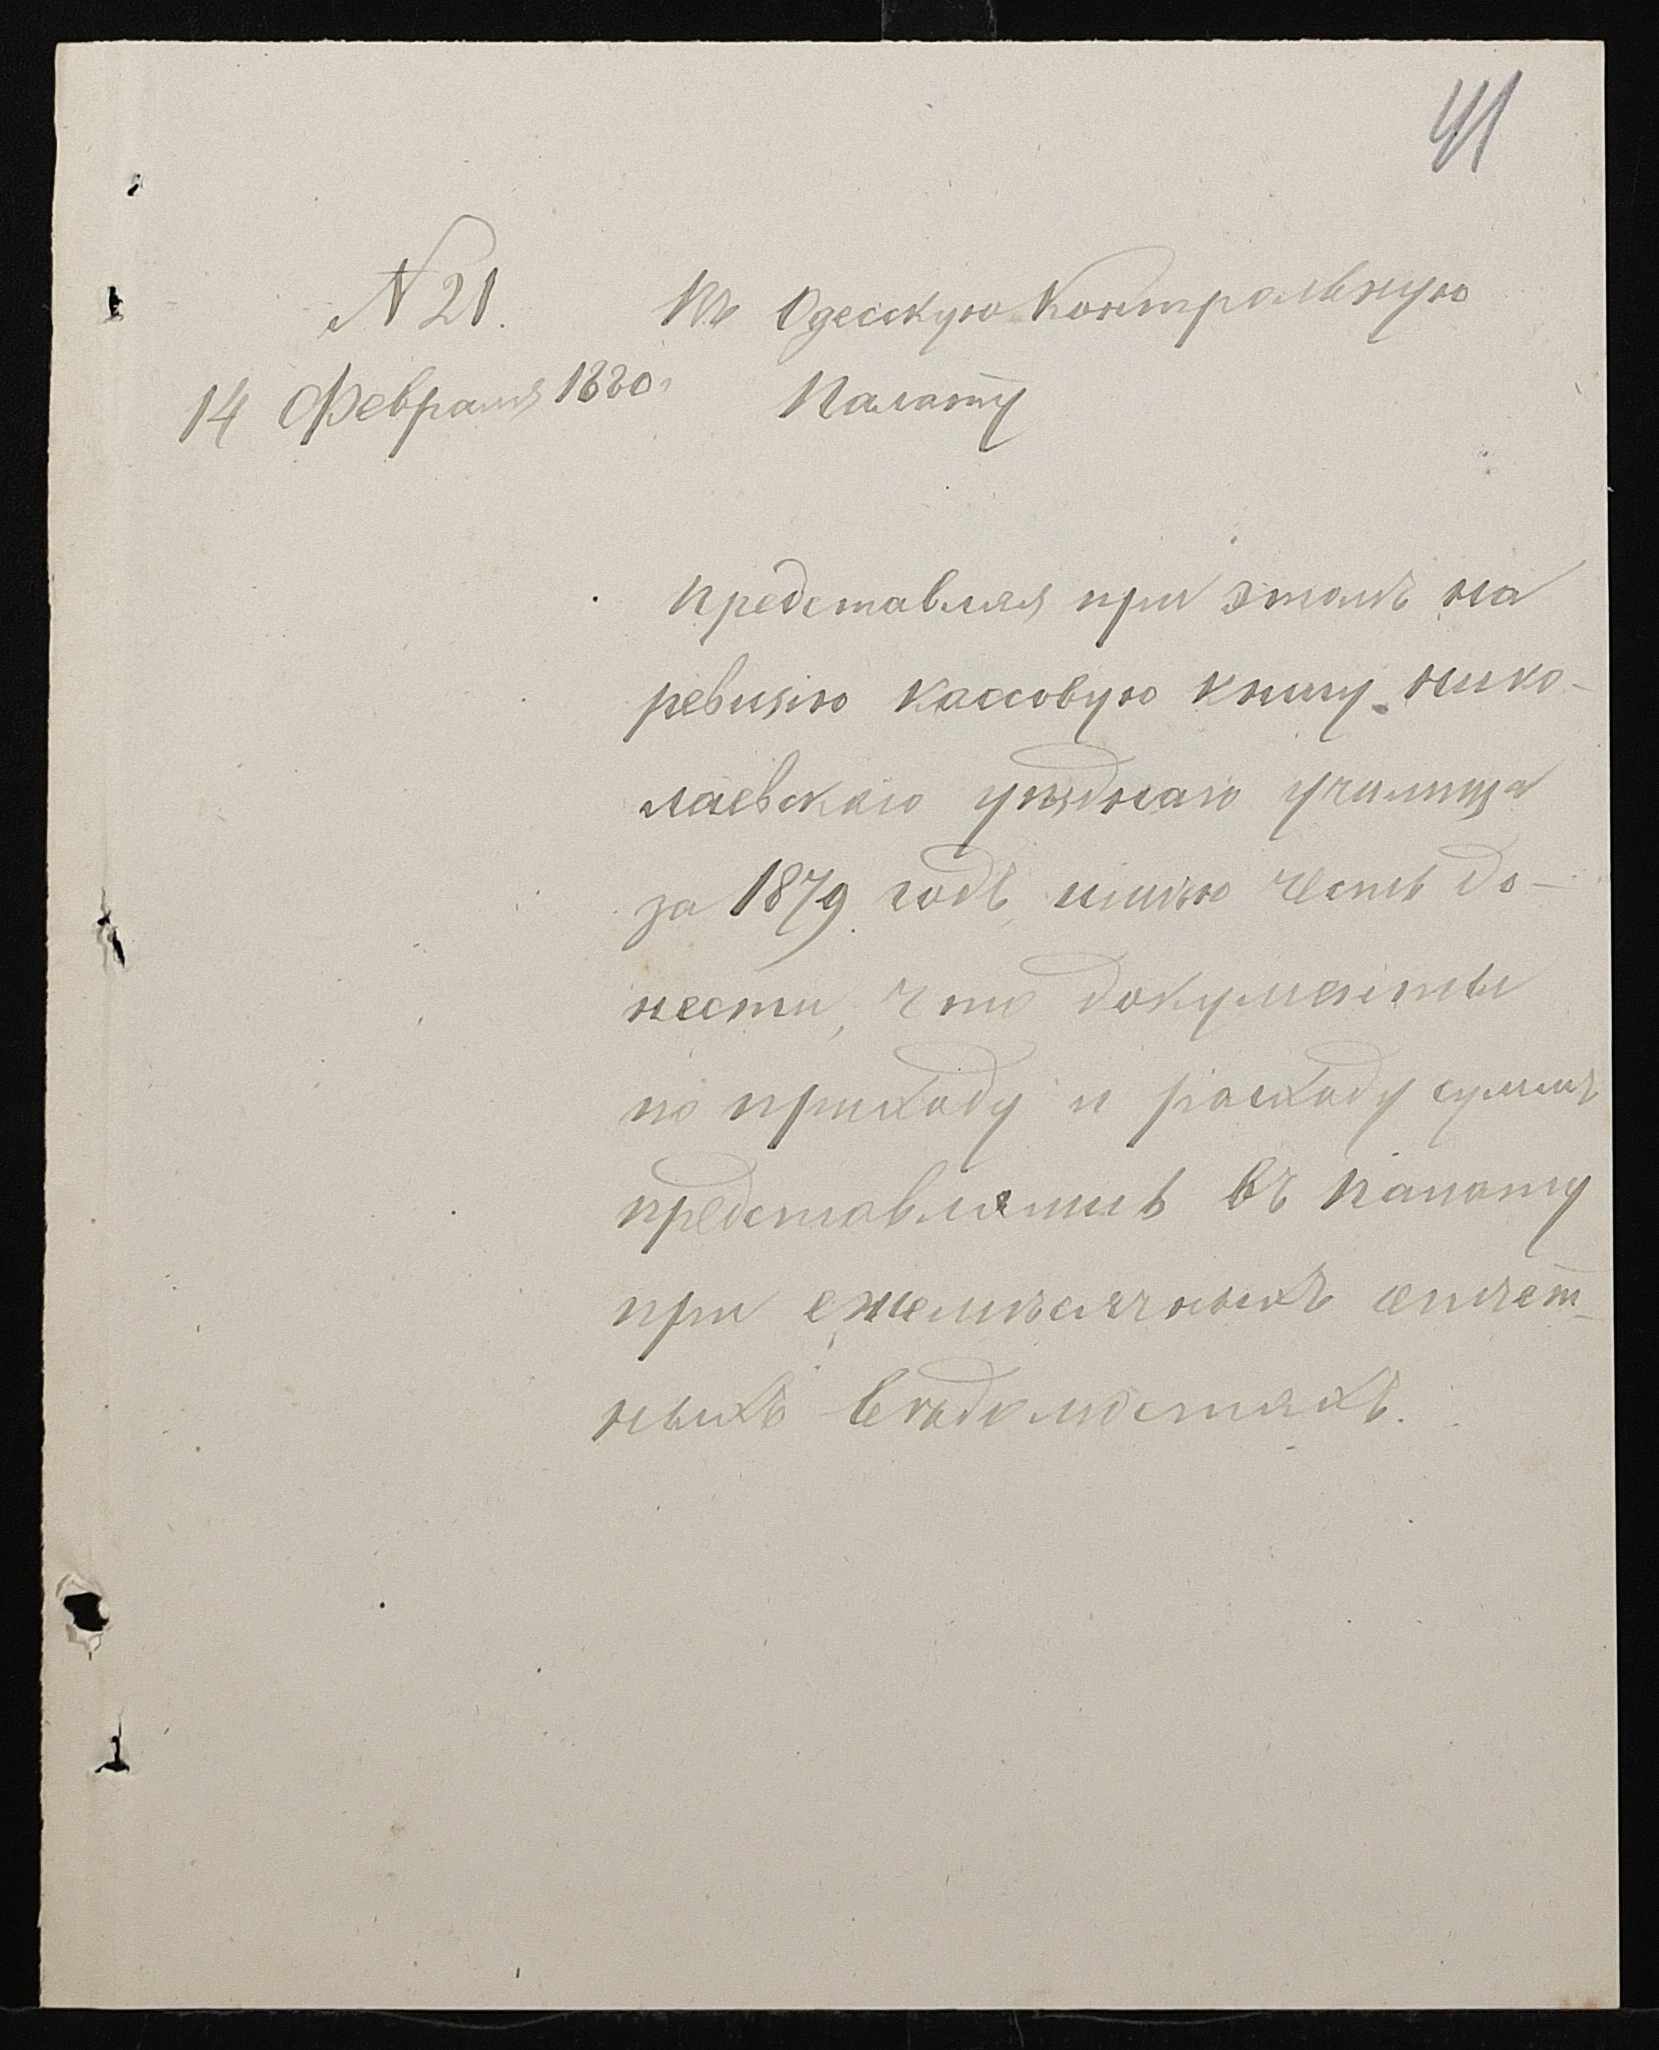 41
№ 21.
14 Февраля 1880 г.
Въ Одесскую Контрольную
Палату
Представляя при этомъ на
ревизію кассовую книгу Нико-
лаевскаго уѣзднаго училища
за 1879 годъ, имѣю честь до-
нести, что документы
по приходу и расходу суммъ
представлялись въ Палату
при ежемѣсячныхъ отчет-
ныхъ вѣдомостяхъ.